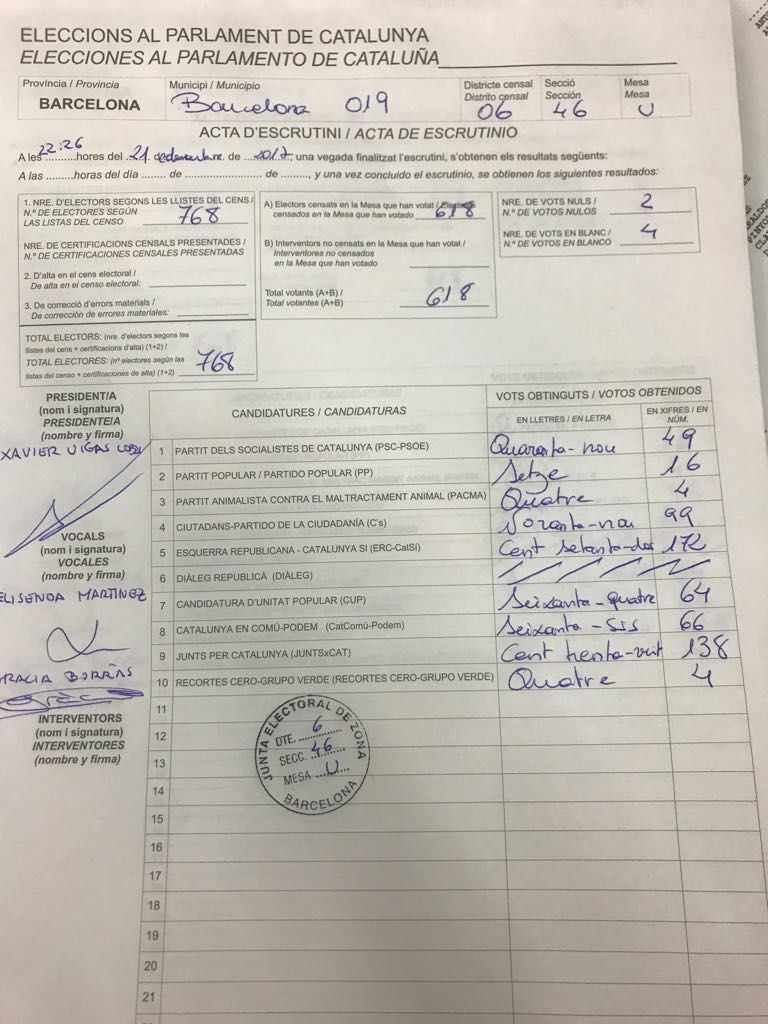 ELECCIONS AL PARLAMENT DE CATALUNYA
ELECCIONES AL PARLAMENTO DE CATALUÑA
Província / Provincia
BARCELONA
Municipi / Municipio
Barcelona 019
Districte censal
Distrito censal
06
Secció
Sección
46
Mesa
Mesa
U
ACTA D'ESCRUTINI / ACTA DE ESCRUTINIO
A les 22:26 hores del 21 de desembre de 2017, una vegada finalitzat l'escrutini, s'obtenen els resultats següents:
A las ......... horas del día ...... de ................... de ........, y una vez concluido el escrutinio, se obtienen los siguientes resultados:
1. NRE. D'ELECTORS SEGONS LES LLISTES DEL CENS /
N.º DE ELECTORES SEGÚN
LAS LISTAS DEL CENSO 768
NRE. DE CERTIFICACIONS CENSALS PRESENTADES /
N.º DE CERTIFICACIONES CENSALES PRESENTADAS
2. D'alta en el cens electoral /
De alta en el censo electoral:
3. De correcció d'errors materials /
De corrección de errores materiales:
TOTAL ELECTORS: (nre. d'electors segons les
llistes del cens + certificacions d'alta) (1+2) /
TOTAL ELECTORES: (nº electores según las
listas del censo + certificaciones de alta) (1+2) 768
A) Electors censats en la Mesa que han votat / Electores
censados en la Mesa que han votado 618
B) Interventors no censats en la Mesa que han votat /
Interventores no censados
en la Mesa que han votado
Total votants (A+B) /
Total votantes (A+B) 618
NRE. DE VOTS NULS /
N.º DE VOTOS NULOS 2
NRE. DE VOTS EN BLANC /
N.º DE VOTOS EN BLANCO 4
PRESIDENT/A
(nom i signatura)
PRESIDENTE/A
(nombre y firma)
XAVIER VIGAS
VOCALS
(nom i signatura)
VOCALES
(nombre y firma)
ELISENDA MARTINEZ
GRACIA BORRÀS
INTERVENTORS
(nom i signatura)
INTERVENTORES
(nombre y firma)
CANDIDATURES / CANDIDATURAS
VOTS OBTINGUTS / VOTOS OBTENIDOS
EN LLETRES / EN LETRA
EN XIFRES / EN NÚM.
1 PARTIT DELS SOCIALISTES DE CATALUNYA (PSC-PSOE) Quaranta-nou 49
2 PARTIT POPULAR / PARTIDO POPULAR (PP) Setze 16
3 PARTIT ANIMALISTA CONTRA EL MALTRACTAMENT ANIMAL (PACMA) Quatre 4
4 CIUTADANS-PARTIDO DE LA CIUDADANÍA (C's) Noranta-nou 99
5 ESQUERRA REPUBLICANA - CATALUNYA SI (ERC-CatSí) Cent setanta-dos 172
6 DIÀLEG REPUBLICÀ (DIÀLEG)
7 CANDIDATURA D'UNITAT POPULAR (CUP) Seixanta-quatre 64
8 CATALUNYA EN COMÚ-PODEM (CatComú-Podem) Seixanta-sis 66
9 JUNTS PER CATALUNYA (JUNTSxCAT) Cent trenta-vuit 138
10 RECORTES CERO-GRUPO VERDE (RECORTES CERO-GRUPO VERDE) Quatre 4
11
12
13
14
15
16
17
18
19
20
21
JUNTA ELECTORAL DE ZONA
DTE. 6
SECC. 46
MESA U
BARCELONA